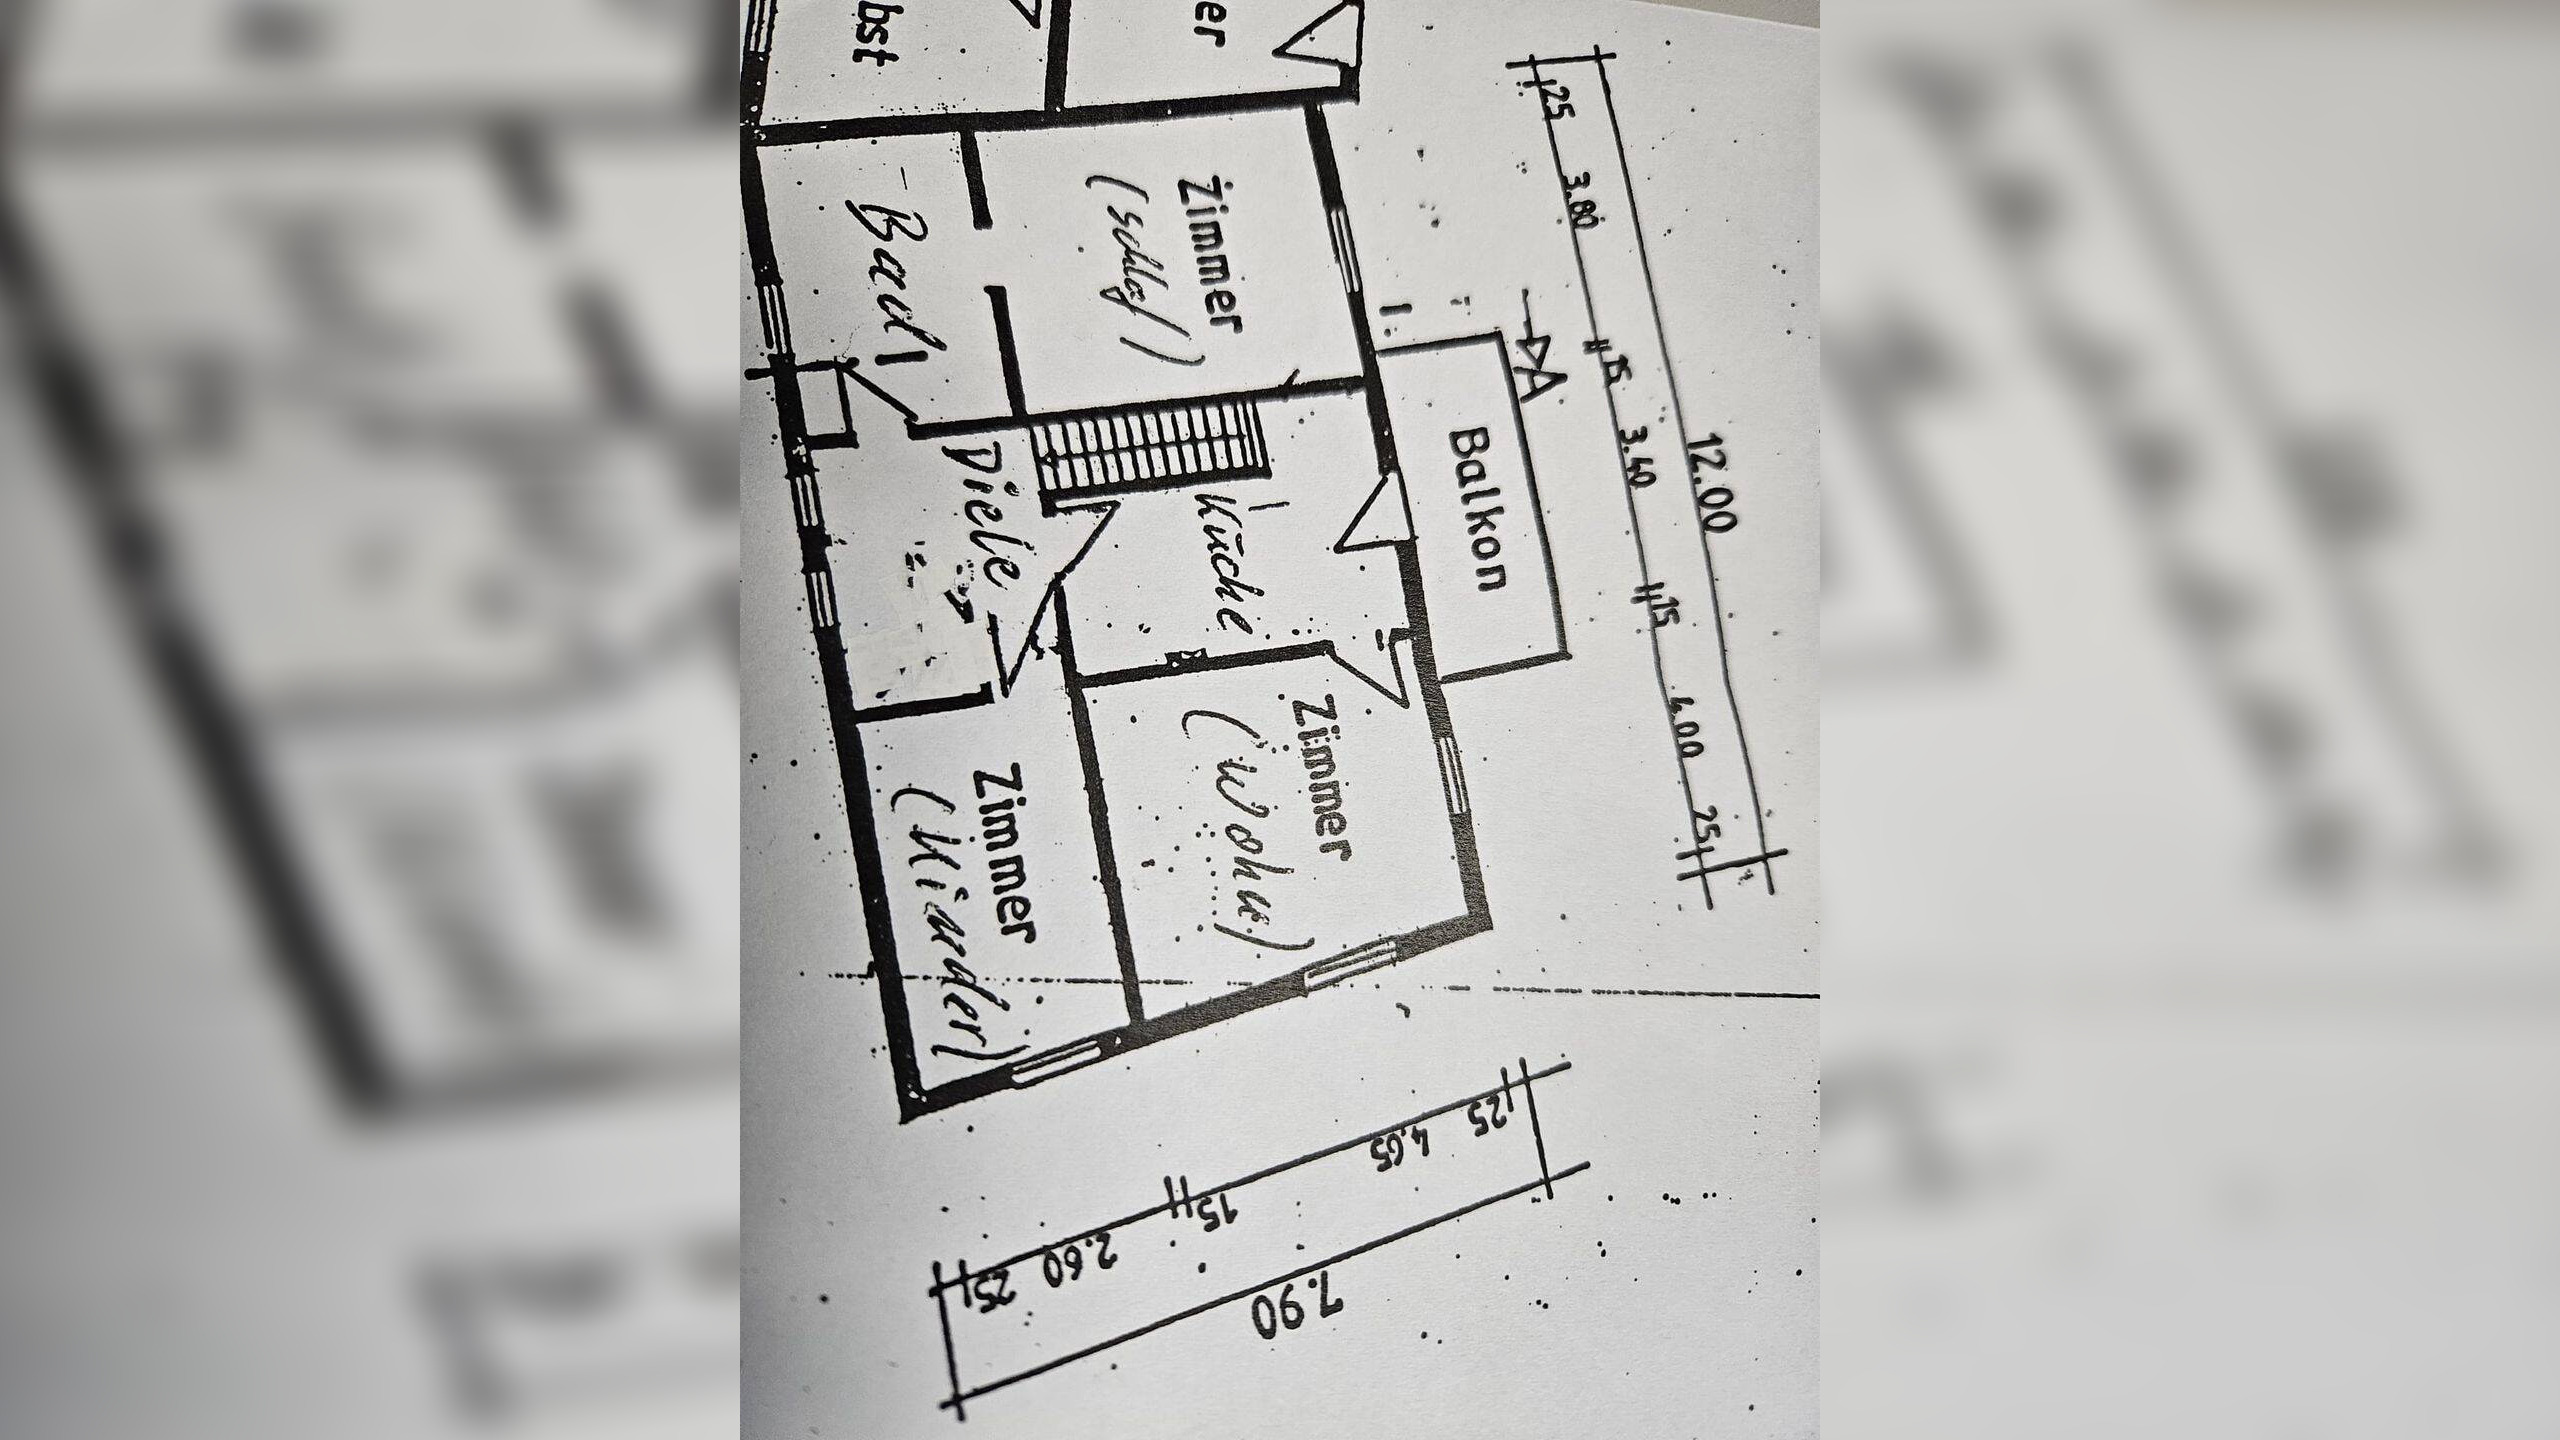 bst
er
Bad
Zimmer
(schlaf)
Balkon
A
Diele
Küche
Zimmer
(Wohn)
Zimmer
(Kinder)
25
3.80
15
3.40
15
4.00
25
12.00
25
4.65
15
2.60
25
7.90